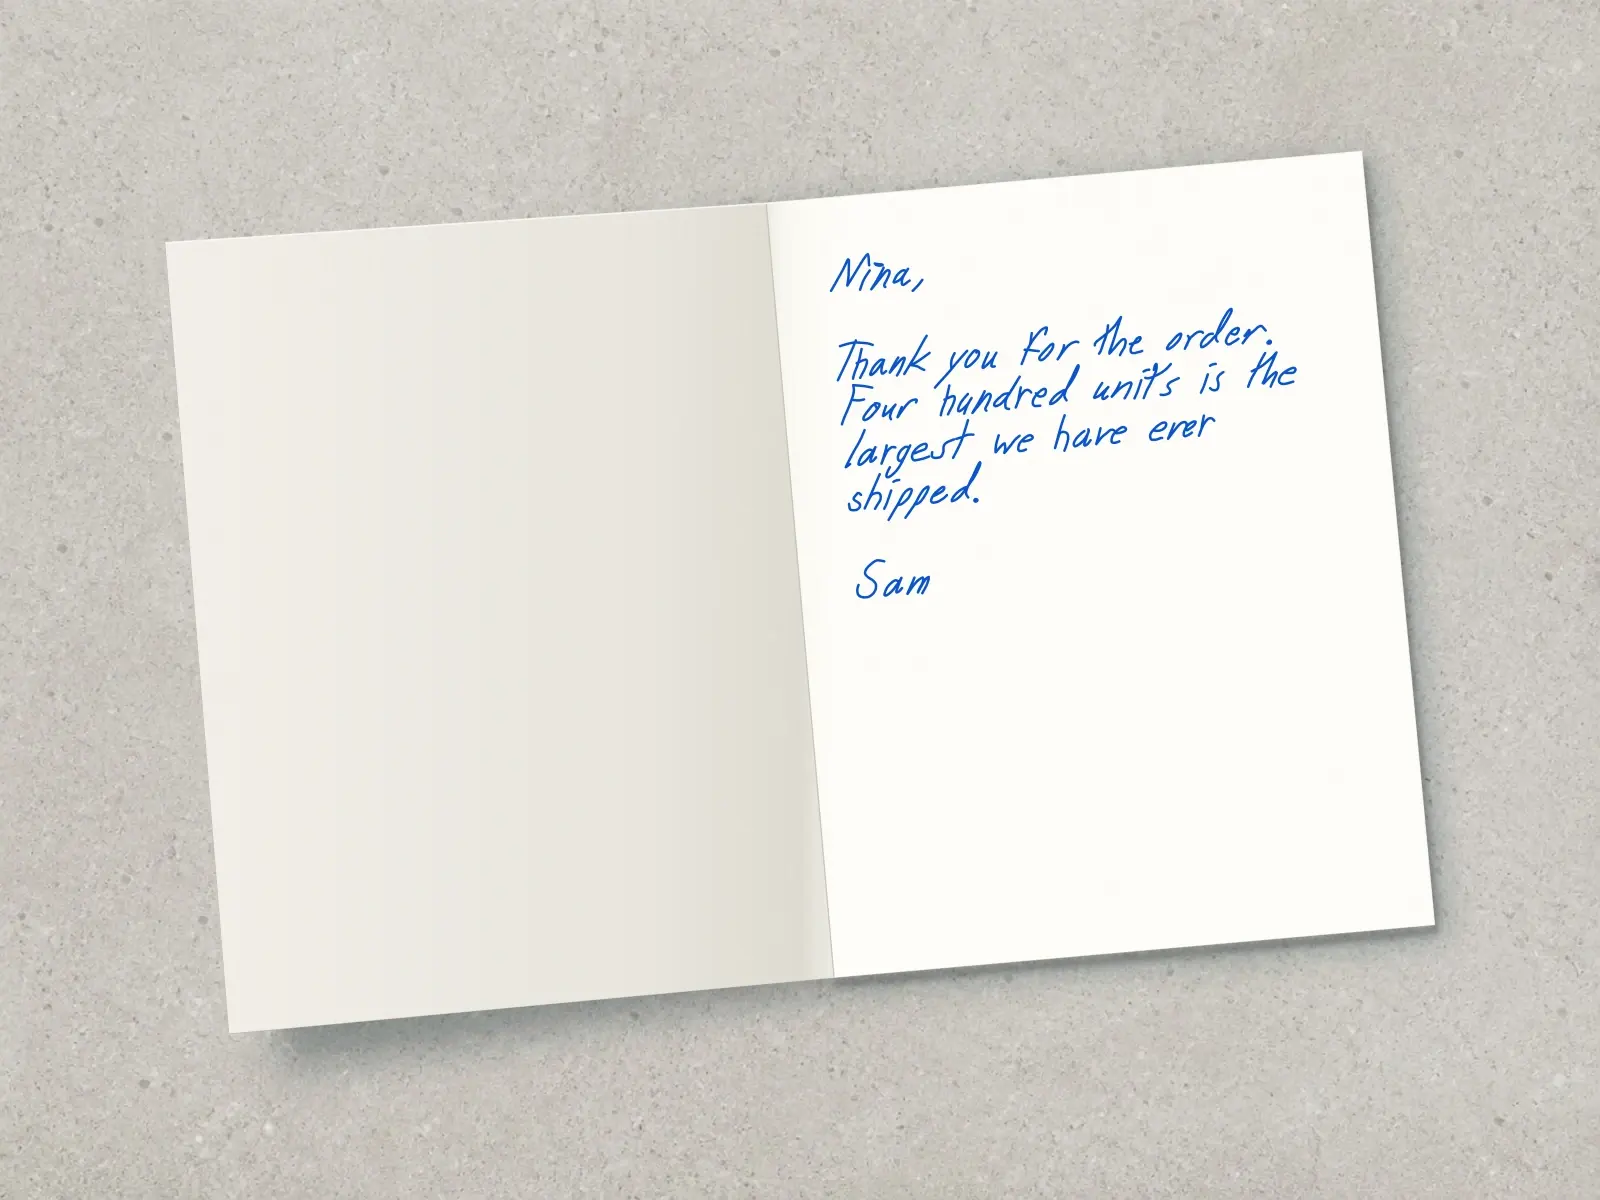 Nina,
Thank you for the order.
Four hundred units is the
largest we have ever
shipped.
Sam